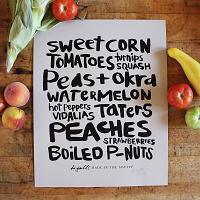 sweet corn
tomatoes turnips
squash
Peas + okra
watermelon
hot peppers
vidalias taters
peaches
strawberries
Boiled P-nuts
made in the south